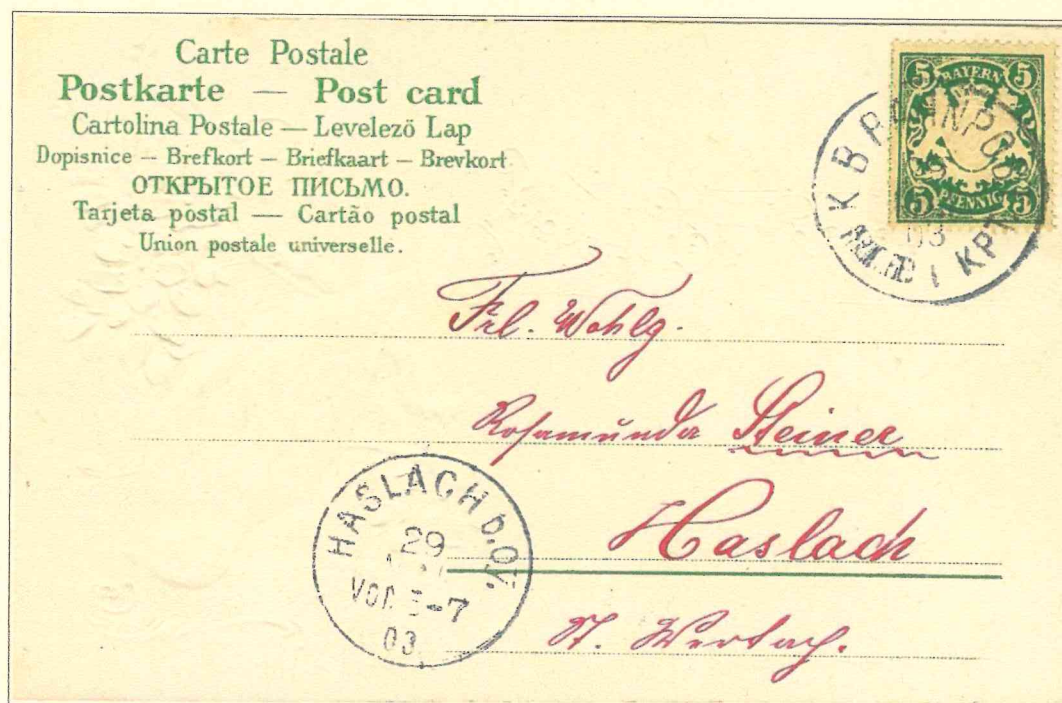 Carte Postale
Postkarte — Post card
Cartolina Postale — Levelezö Lap
Dopisnice — Brefkort — Briefkaart — Brevkort
ОТКРЫТОЕ ПИСЬМО.
Tarjeta postal — Cartão postal
Union postale universelle.
5 BAYERN 5
5 PFENNIG 5
K BAHNPOST
03
KPT
Frl. Wohlg.
Rosamunda Steiner
Haslach
St. Wertach.
HASLACH b. Oy.
29
VOR 5-7
03